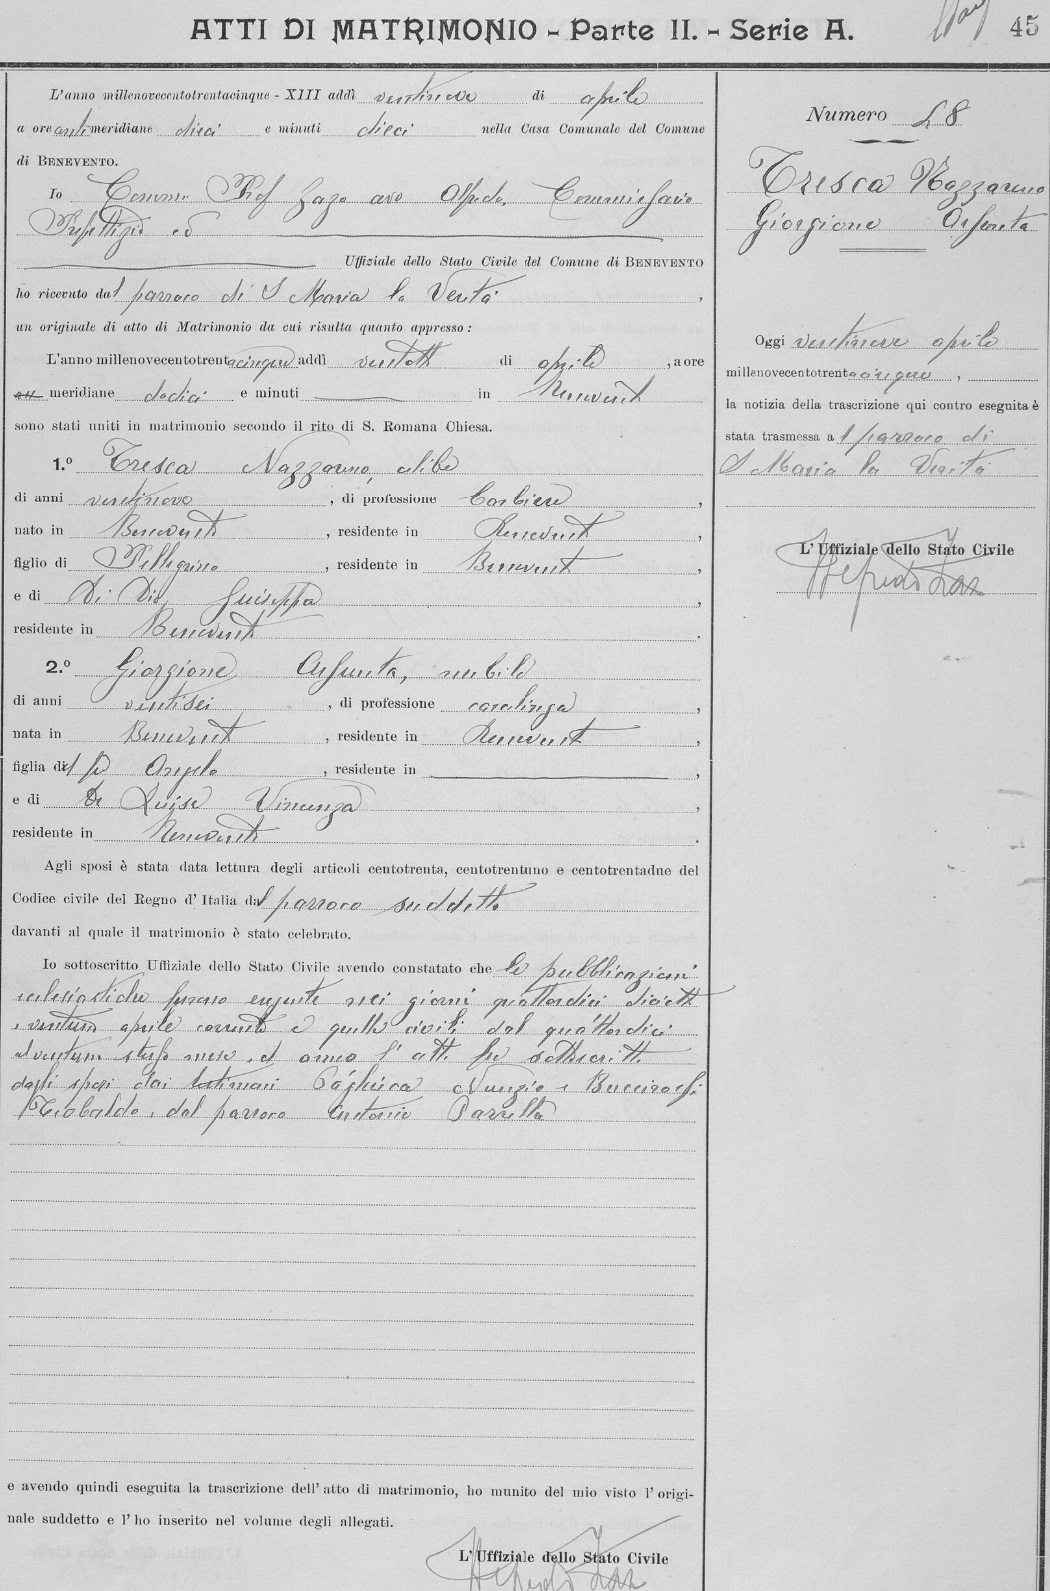 ATTI DI MATRIMONIO - Parte II. - Serie A.
45
L'anno millenovecentotrentacinque - XIII addì ventinove di aprile
a ore antimeridiane dieci e minuti dieci nella Casa Comunale del Comune
di BENEVENTO.
Io Comm. Prof Zazo avv Alfredo, Commissario
Prefettizio ed
Uffiziale dello Stato Civile del Comune di BENEVENTO
ho ricevuto dal parroco di S Maria la Verità ,
un originale di atto di Matrimonio da cui risulta quanto appresso :
L'anno millenovecentotrentacinque addì ventotto di aprile , a ore
meridiane dodici e minuti in Benevento
sono stati uniti in matrimonio secondo il rito di S. Romana Chiesa.
1.º Tresca Nazzareno, celibe
di anni ventinove , di professione barbiere ,
nato in Benevento , residente in Benevento ,
figlio di Pellegrino , residente in Benevento ,
e di Di Dio Giuseppa ,
residente in Benevento .
2.º Giorgione Assunta, nubile
di anni ventisei , di professione casalinga ,
nata in Benevento , residente in Benevento ,
figlia del fu Angelo , residente in ,
e di De Luise Vincenza ,
residente in Benevento .
Agli sposi è stata data lettura degli articoli centotrenta, centotrentuno e centotrentadue del
Codice civile del Regno d'Italia dal parroco suddetto
davanti al quale il matrimonio è stato celebrato.
Io sottoscritto Uffiziale dello Stato Civile avendo constatato che le pubblicazioni
ecclesiastiche furono eseguite nei giorni quattordici diciotto
e ventuno aprile corrente e quelle civili dal quattordici
al ventuno stesso mese ed anno l'atto fu sottoscritto
dagli sposi dai testimoni Nunzio e
Teobaldo, dal parroco Antonio Parrella
e avendo quindi eseguita la trascrizione dell'atto di matrimonio, ho munito del mio visto l'origi-
nale suddetto e l'ho inserito nel volume degli allegati.
L'Uffiziale dello Stato Civile
Alfredo Zazo
Numero 48
Tresca Nazzareno
Giorgione Assunta
Oggi ventinove aprile
millenovecentotrentacinque ,
la notizia della trascrizione qui contro eseguita è
stata trasmessa al parroco di
S Maria la Verità
L'Uffiziale dello Stato Civile
Alfredo Zazo